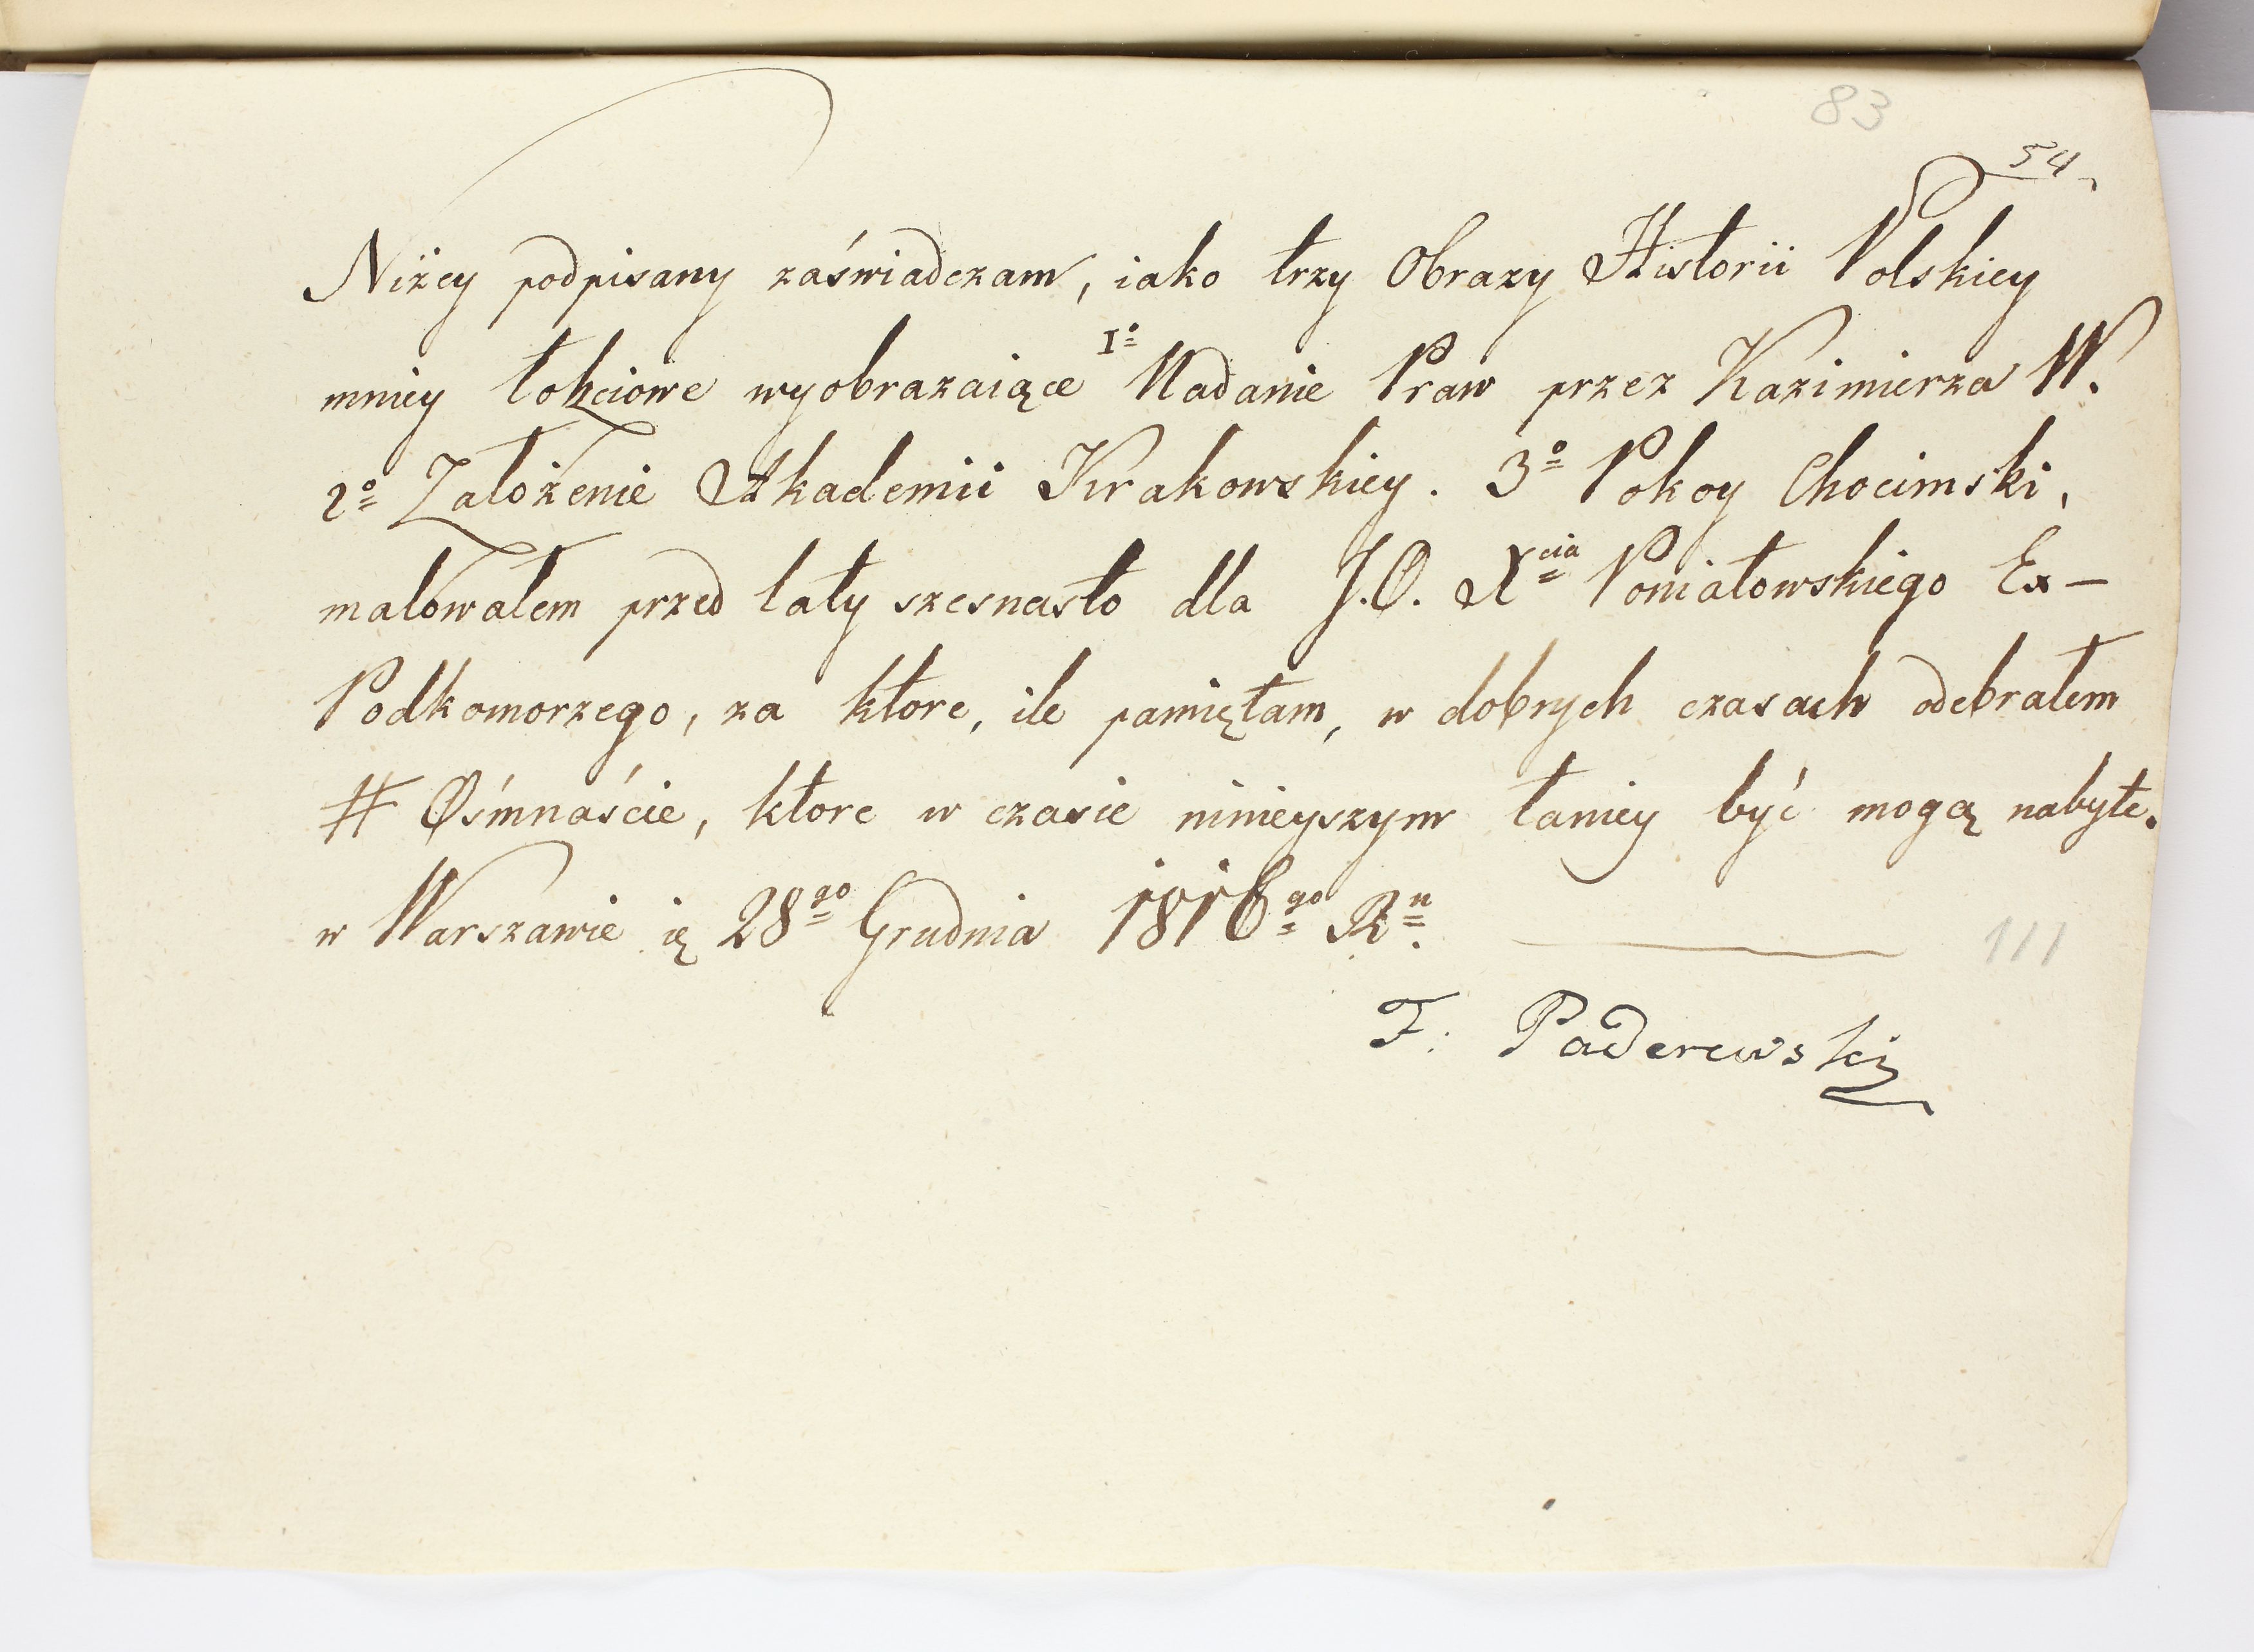 83
54
Niżey podpisany zaświadczam, iako trzy Obrazy Historii Polskiey
mniey łokciowe wyobrazaiące 1º Nadanie Praw przez Kazimierza W.
2º Założenie Akademii Krakowskiey. 3º Pokoy Chocimski,
malowałem przed laty szesnasto dla J.O. Xcia Poniatowskiego Ex-
Podkomorzego, za ktore, ile pamiętam, w dobrych czasach odebrałem
# Ośmnaście, ktore w czasie ninieyszym taniey być mogą nabyte.
w Warszawie 28go Grudnia 1816go Ru.
111
F. Paderewski